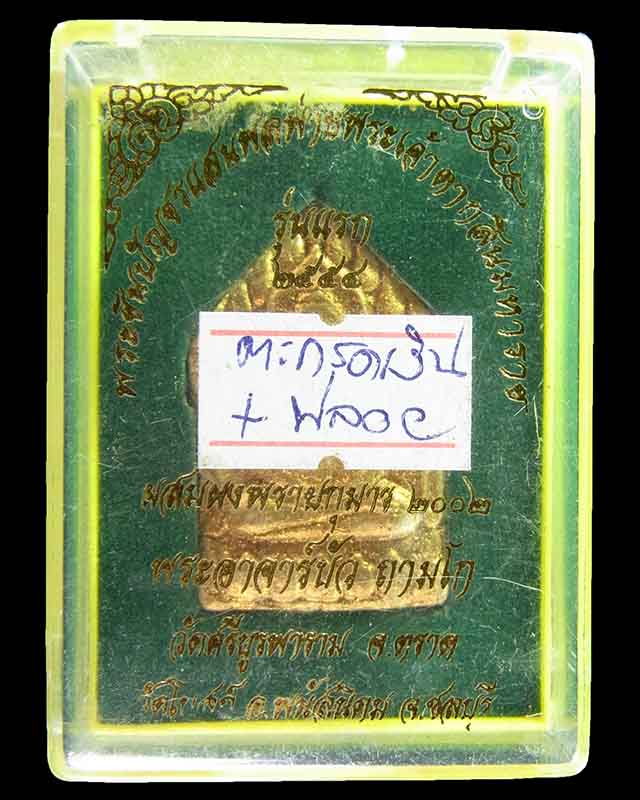 พระขันปัญจรแสนพลพ่ายพระเจ้าตากสินมหาราช
รุ่นแรก
๒๕๕๔
ตะกรุดเงิน
+ พลอย
ผสมผงพรายกุมาร ๒๐๐๒
พระอาจารย์บัว ถามโก
วัดศรีบูรพาราม จ.ตราด
อ.พนัสนิคม จ.ชลบุรี